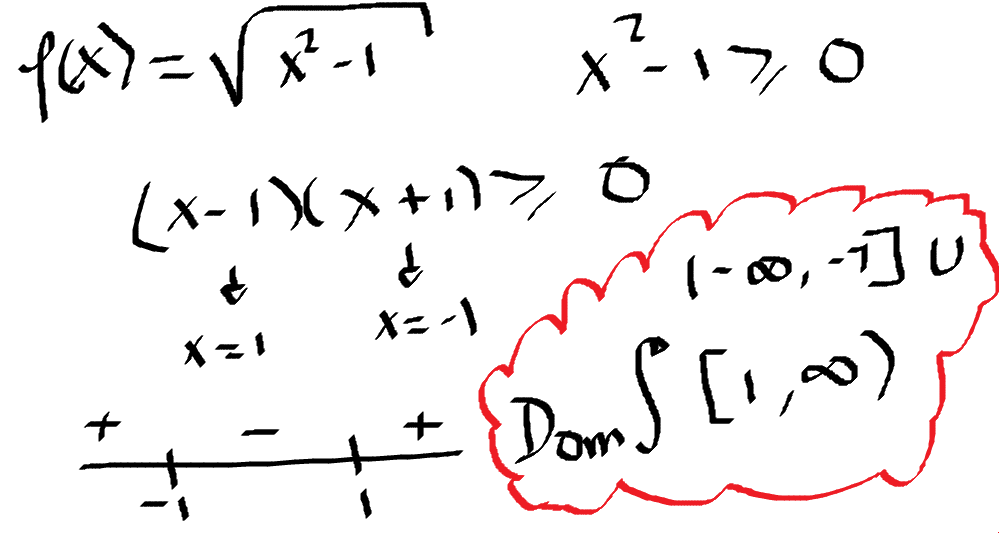 f(x) = √(x² - 1)    x² - 1 ≥ 0
(x - 1)(x + 1) ≥ 0
↓ ↓
x = 1    x = -1
+ - +
-1 1
(-∞, -1] ∪
Dom f [1, ∞)